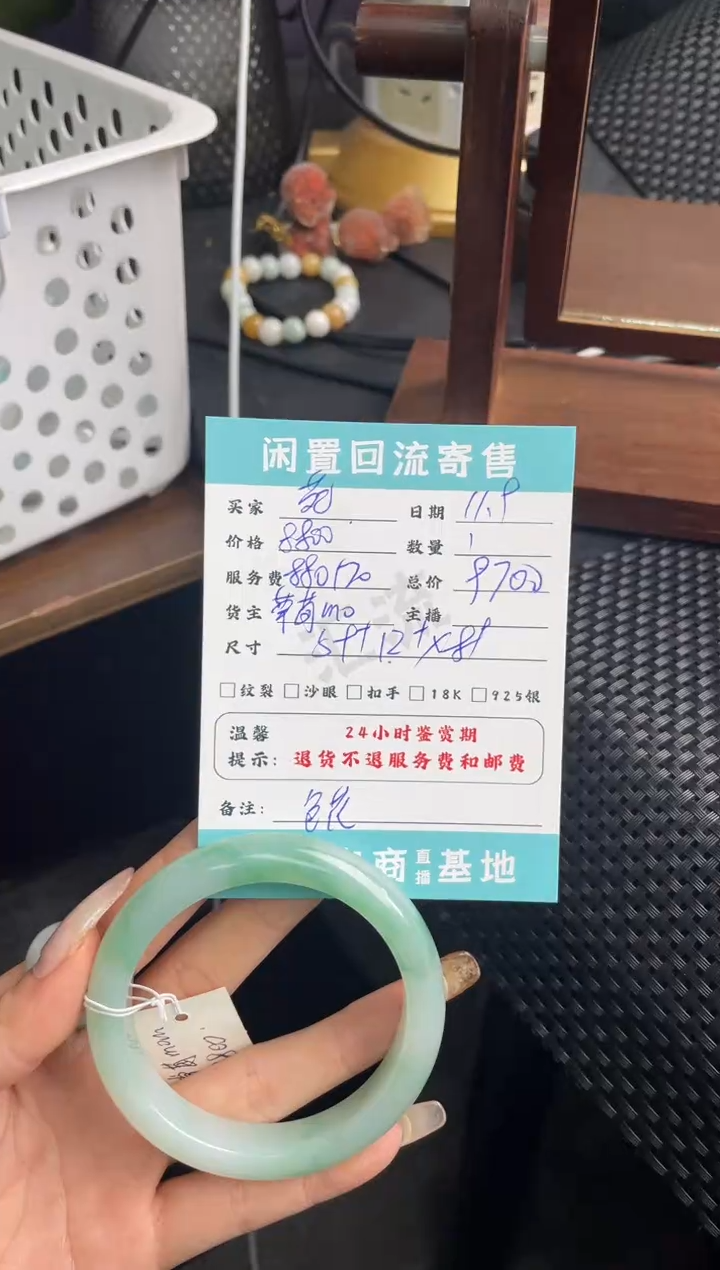 闲置回流寄售
买家 苑 日期 11.9
价格 8800 数量 1
服务费 880 120 总价 9700
货主 草莓mo 主播
尺寸 5 12 8
汇流
□纹裂 □沙眼 □扣手 □18K □925银
温馨 24小时鉴赏期
提示: 退货不退服务费和邮费
备注: 色花
商直播基地
mom